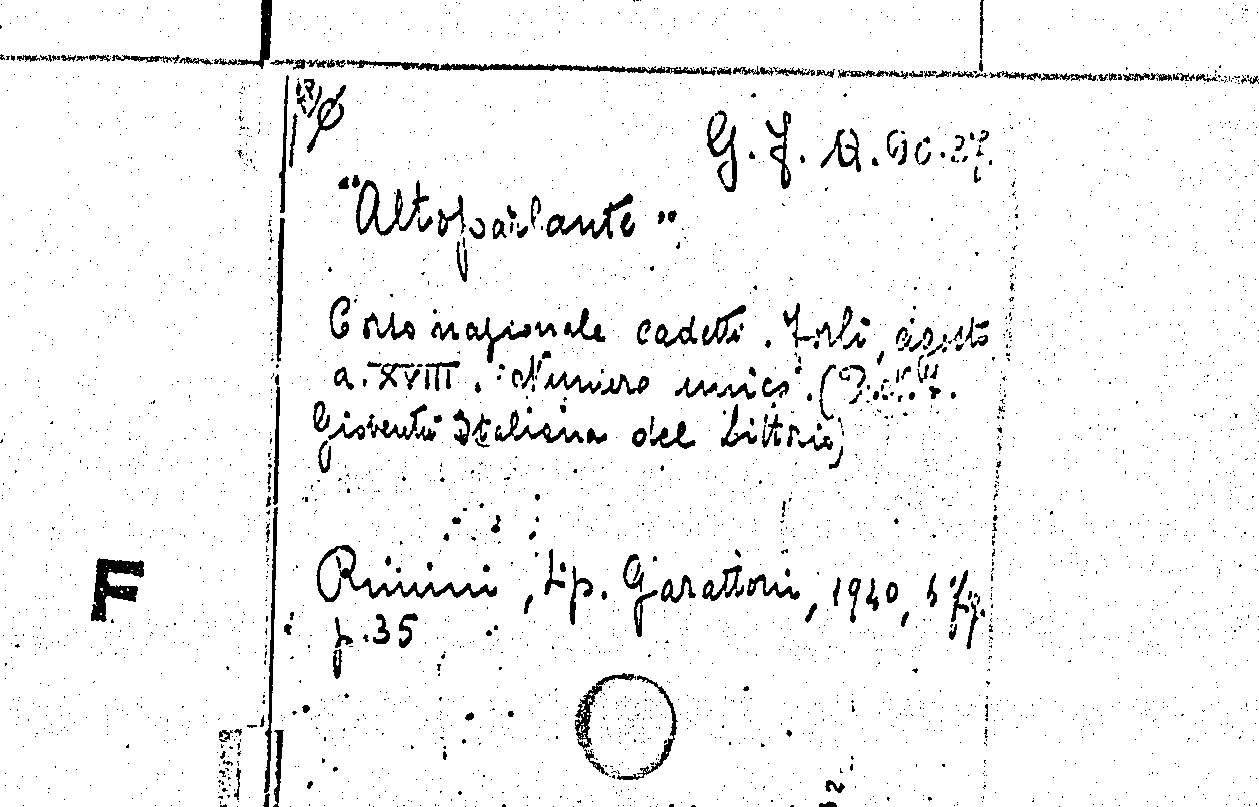 G. F. A. 90. 27.
"Altoparlante".
Corso nazionale cadetti. Forlì, agosto
a. XVIII. Numero unico. (
Gioventù Italiana del Littorio)
F
Rimini, Tip. Garattoni, 1940, 4 fig.
p. 35